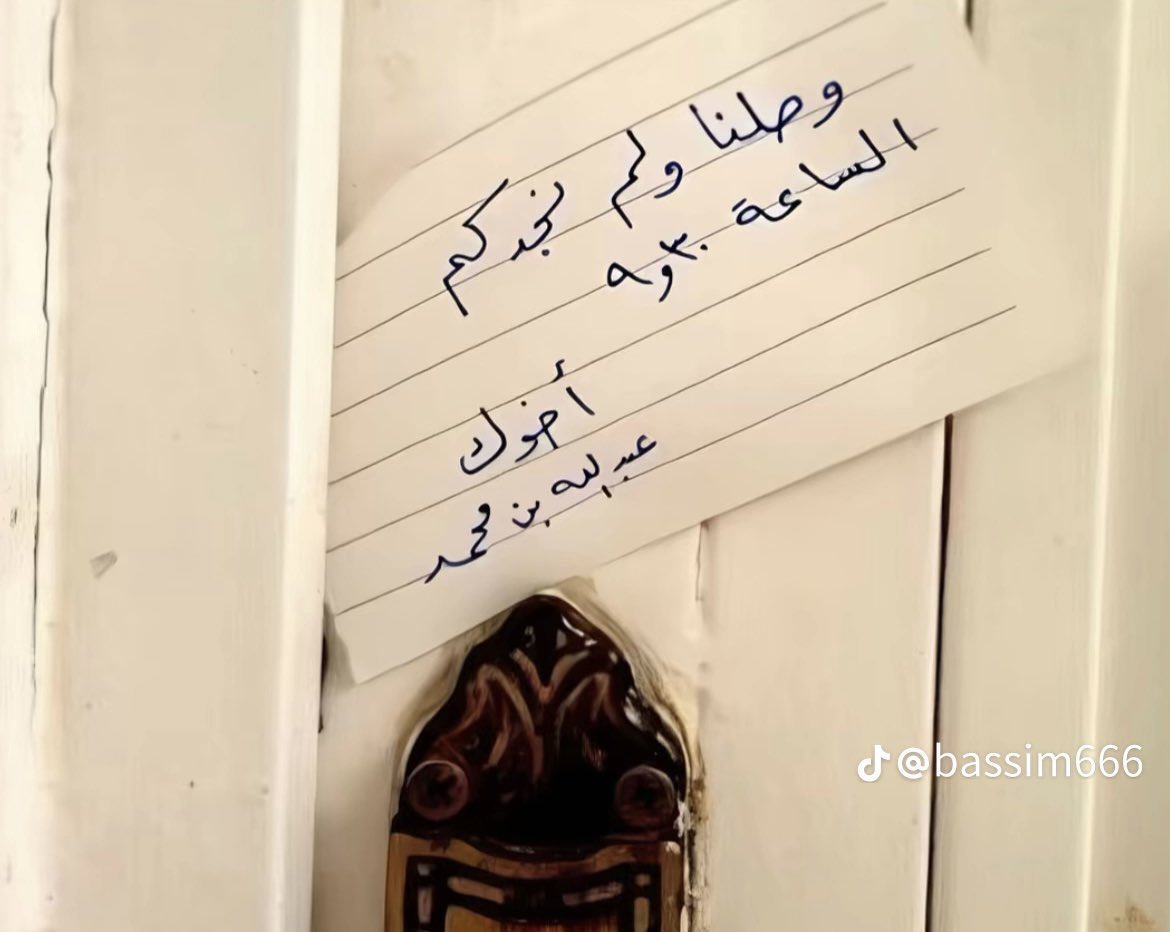 وصلنا ولم نجدكم
الساعة ٣٠و٩
أخوك
عبدالله بن محمد
@bassim666